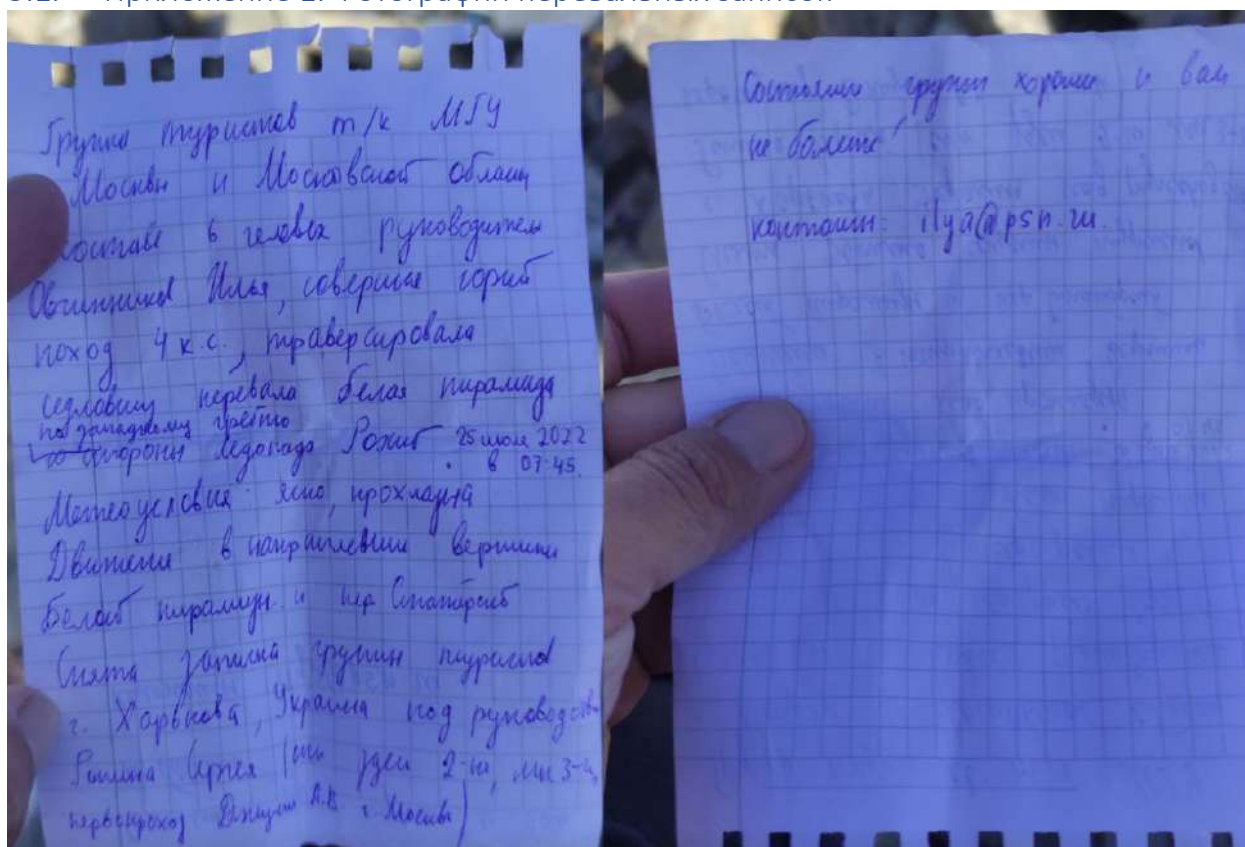 Группа туристов т/к МГУ
Москвы и Московской области
составе 6 человек руководитель
Овчинников Илья, совершая горный
поход 4 к.с., траверсировала
седловину перевала Белая пирамида
по западному гребню
со стороны ледопада Рохит 25 июля 2022
в 07:45.
Метеоусловия: ясно, прохладно
Движение в направлении вершины
Белой пирамиды и пер
Снята записка группы туристов
г. Харькова, Украина под руководством
Сергея (они здесь 2-ые, мы 3-и,
первопроход А.В г. Москва)
Состояние группы хорошее и вам
не болеть!
контакты: ilya@psn.ru.